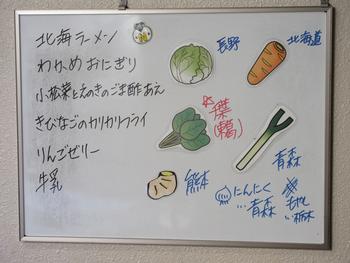 北海ラーメン
わかめおにぎり
小松菜とえのきのごま酢あえ
きびなごのカリカリフライ
りんごゼリー
牛乳
長野
北海道
葉
青森
熊本
にんにく
…青森
もやし
…栃木